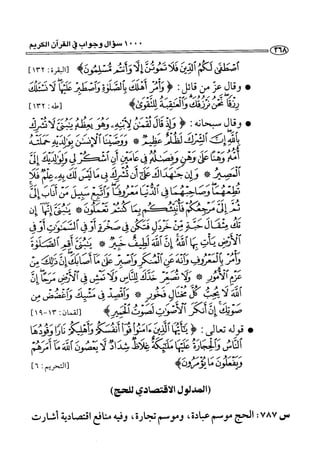 ١٠٠٠ سؤال وجواب في القرآن الكريم
٢٦٨
اصْطَفَى لَكُمُ الدِّينَ فَلَا تَمُوتُنَّ إِلَّا وَأَنْتُمْ مُسْلِمُونَ﴾ [البقرة: ١٣٢]
• وقال عز من قائل: ﴿وَأْمُرْ أَهْلَكَ بِالصَّلَاةِ وَاصْطَبِرْ عَلَيْهَا لَا نَسْأَلُكَ
رِزْقًا نَحْنُ نَرْزُقُكَ وَالْعَاقِبَةُ لِلتَّقْوَى﴾ [طه: ١٣٢]
• وقال سبحانه: ﴿وَإِذْ قَالَ لُقْمَانُ لِابْنِهِ وَهُوَ يَعِظُهُ يَا بُنَيَّ لَا تُشْرِكْ
بِاللَّهِ إِنَّ الشِّرْكَ لَظُلْمٌ عَظِيمٌ * وَوَصَّيْنَا الْإِنْسَانَ بِوَالِدَيْهِ حَمَلَتْهُ
أُمُّهُ وَهْنًا عَلَى وَهْنٍ وَفِصَالُهُ فِي عَامَيْنِ أَنِ اشْكُرْ لِي وَلِوَالِدَيْكَ إِلَيَّ
الْمَصِيرُ * وَإِنْ جَاهَدَاكَ عَلَى أَنْ تُشْرِكَ بِي مَا لَيْسَ لَكَ بِهِ عِلْمٌ فَلَا
تُطِعْهُمَا وَصَاحِبْهُمَا فِي الدُّنْيَا مَعْرُوفًا وَاتَّبِعْ سَبِيلَ مَنْ أَنَابَ إِلَيَّ
ثُمَّ إِلَيَّ مَرْجِعُكُمْ فَأُنَبِّئُكُمْ بِمَا كُنْتُمْ تَعْمَلُونَ * يَا بُنَيَّ إِنَّهَا إِنْ
تَكُ مِثْقَالَ حَبَّةٍ مِنْ خَرْدَلٍ فَتَكُنْ فِي صَخْرَةٍ أَوْ فِي السَّمَاوَاتِ أَوْ فِي
الْأَرْضِ يَأْتِ بِهَا اللَّهُ إِنَّ اللَّهَ لَطِيفٌ خَبِيرٌ * يَا بُنَيَّ أَقِمِ الصَّلَاةَ
وَأْمُرْ بِالْمَعْرُوفِ وَانْهَ عَنِ الْمُنْكَرِ وَاصْبِرْ عَلَى مَا أَصَابَكَ إِنَّ ذَلِكَ مِنْ
عَزْمِ الْأُمُورِ * وَلَا تُصَعِّرْ خَدَّكَ لِلنَّاسِ وَلَا تَمْشِ فِي الْأَرْضِ مَرَحًا إِنَّ
اللَّهَ لَا يُحِبُّ كُلَّ مُخْتَالٍ فَخُورٍ * وَاقْصِدْ فِي مَشْيِكَ وَاغْضُضْ مِنْ
صَوْتِكَ إِنَّ أَنْكَرَ الْأَصْوَاتِ لَصَوْتُ الْحَمِيرِ﴾ [لقمان: ١٣-١٩]
• قوله تعالى: ﴿يَا أَيُّهَا الَّذِينَ آمَنُوا قُوا أَنْفُسَكُمْ وَأَهْلِيكُمْ نَارًا وَقُودُهَا
النَّاسُ وَالْحِجَارَةُ عَلَيْهَا مَلَائِكَةٌ غِلَاظٌ شِدَادٌ لَا يَعْصُونَ اللَّهَ مَا أَمَرَهُمْ
وَيَفْعَلُونَ مَا يُؤْمَرُونَ﴾ [التحريم: ٦]
(المدلول الاقتصادي للحج)
س ٧٨٧: الحج موسم عبادة، وموسم تجارة، وفيه منافع اقتصادية أشارت